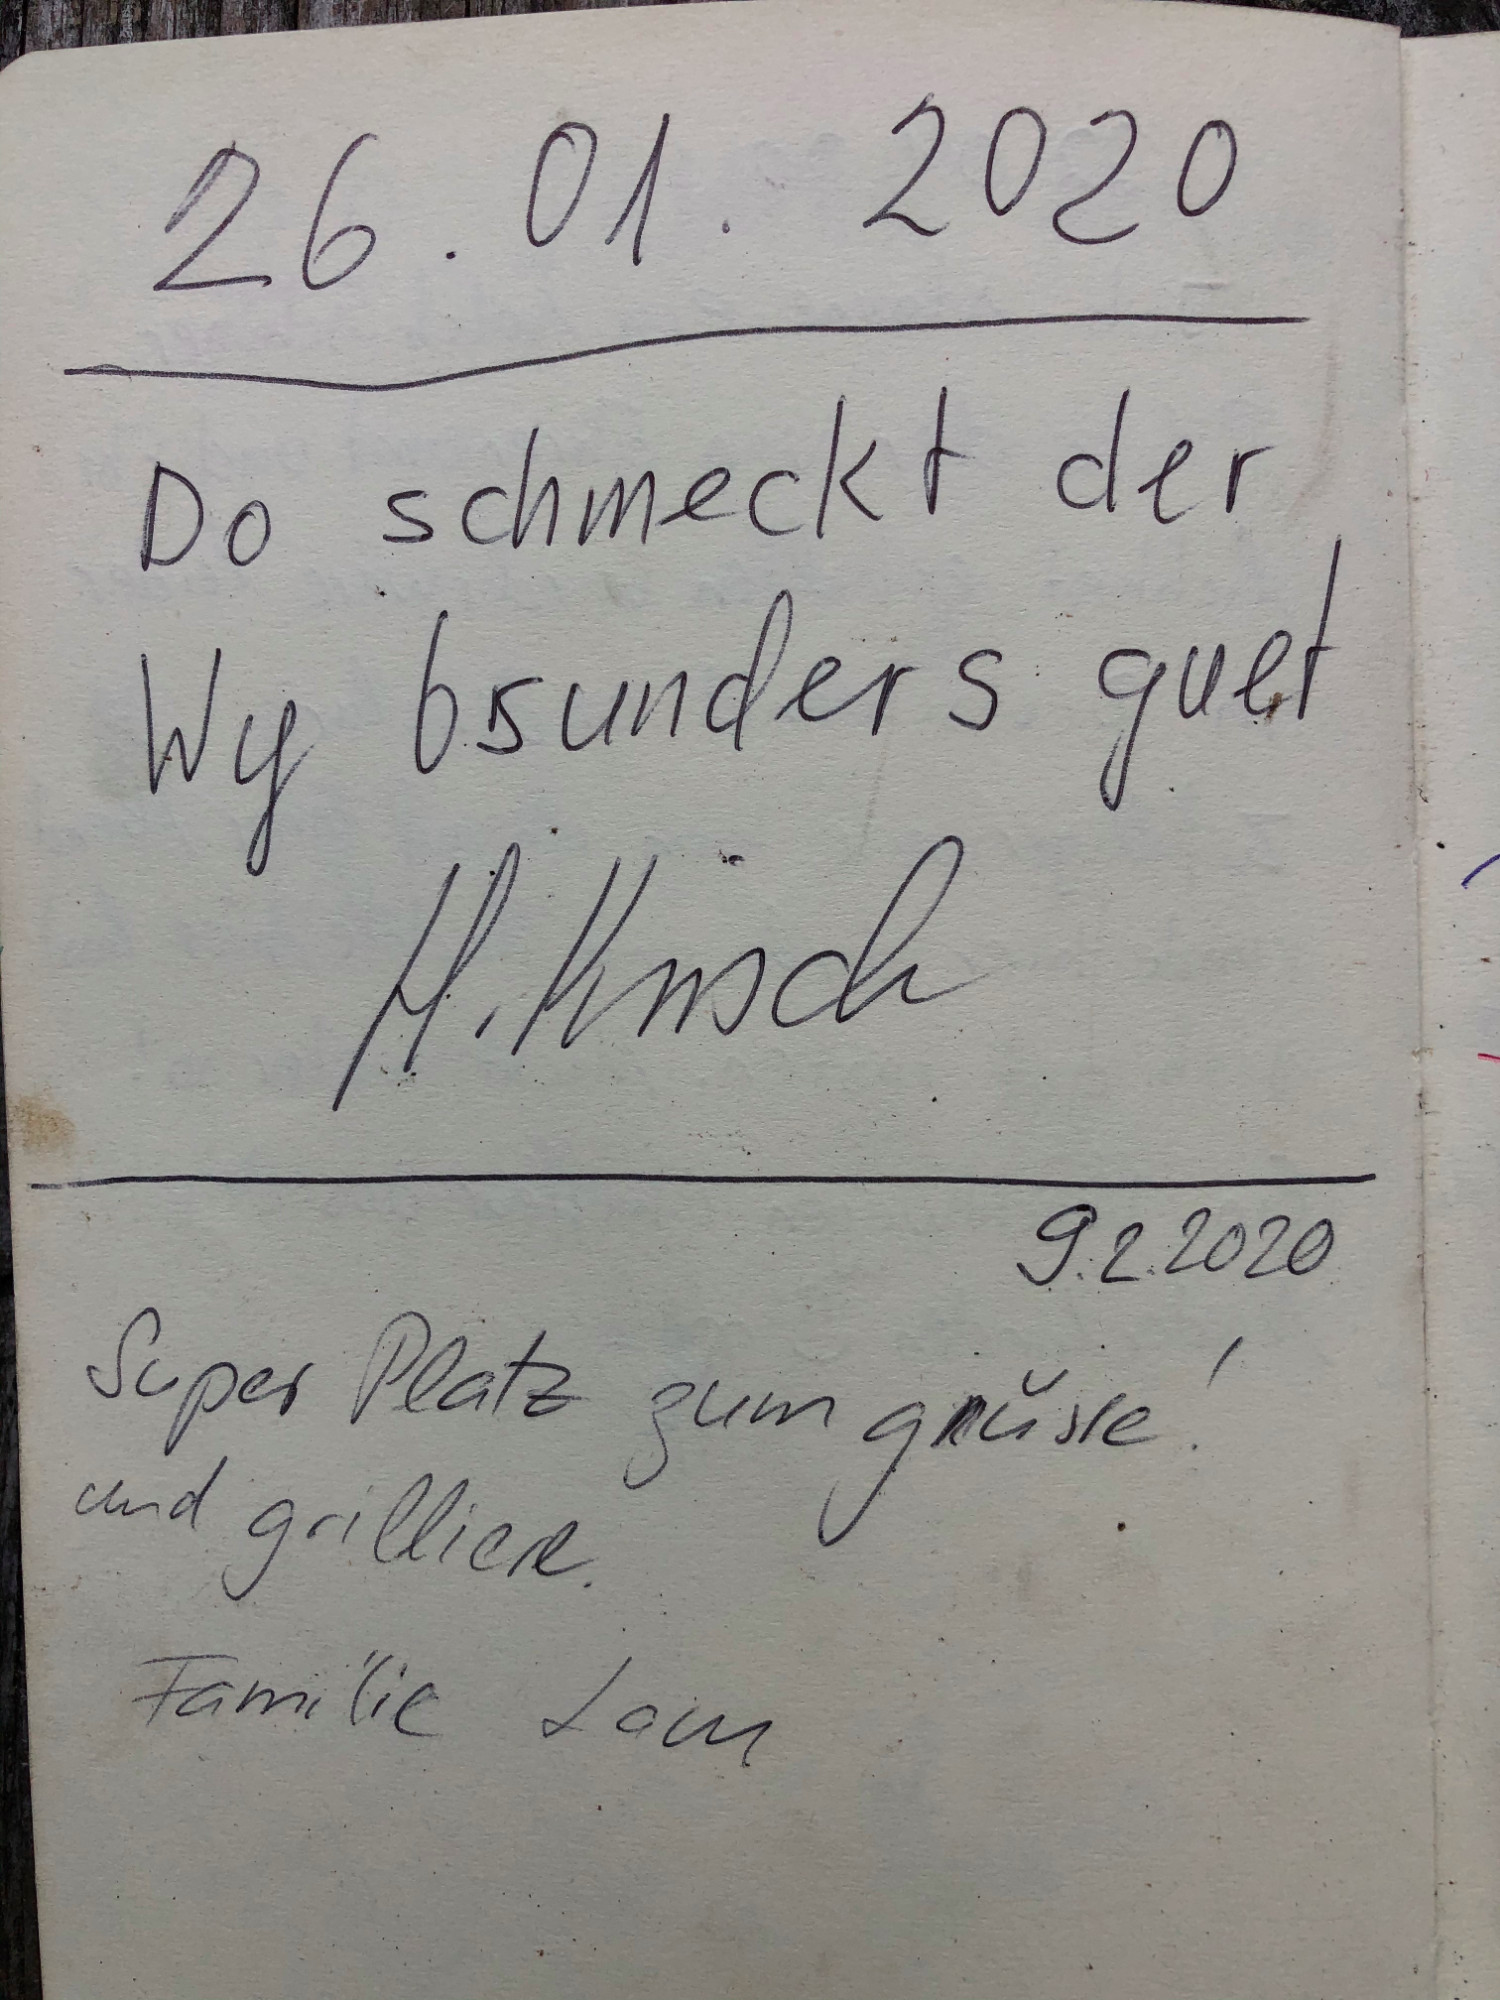 26.01.2020
Do schmeckt der
Wy bsunders guet
H.
9.2.2020
Super Platz zum gnüsse!
und grilliere.
Familie Lam